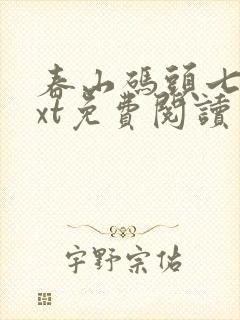 春山碼頭七
xt免費閱讀
宇野宗佑